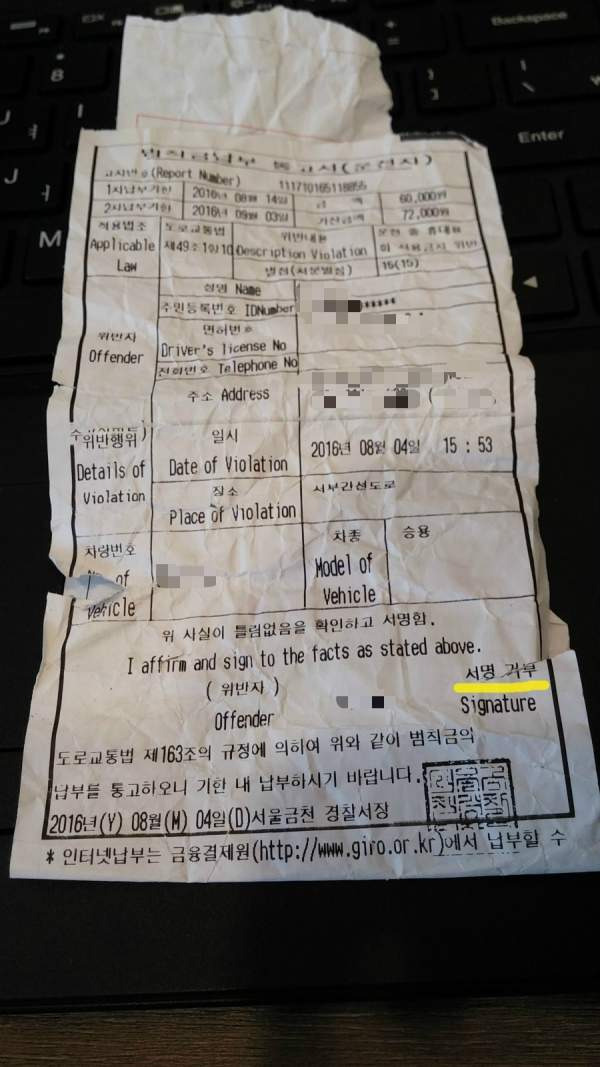 범칙금납부 통고서(운전자)
고지번호(Report Number) 111710165118855
1차납부기한 2016년 08월 14일 금 액 60,000원
2차납부기한 2016년 09월 03일 가산금액 72,000원
적용법조 도로교통법 위반내용 운전 중 휴대전
Applicable 제49조1항10 Description Violation 화 사용금지 위반
Law 벌점(처분벌점) 15(15)
성명 Name
주민등록번호 IDNumber ******
위반자 면허번호
Offender Driver's license No
전화번호 Telephone No
주소 Address
위반행위 일시 2016년 08월 04일 15 : 53
Details of Date of Violation
Violation 장소 서부간선도로
Place of Violation
차량번호 차종 승용
of Model of
Vehicle Vehicle
위 사실이 틀림없음을 확인하고 서명함.
I affirm and sign to the facts as stated above.
( 위반자 ) 서명 거부
Offender Signature
도로교통법 제163조의 규정에 의하여 위와 같이 범칙금의
납부를 통고하오니 기한 내 납부하시기 바랍니다.
2016년(Y) 08월(M) 04일(D)서울금천 경찰서장
* 인터넷납부는 금융결제원(http://www.giro.or.kr)에서 납부할 수
Backspace
Enter
8
M